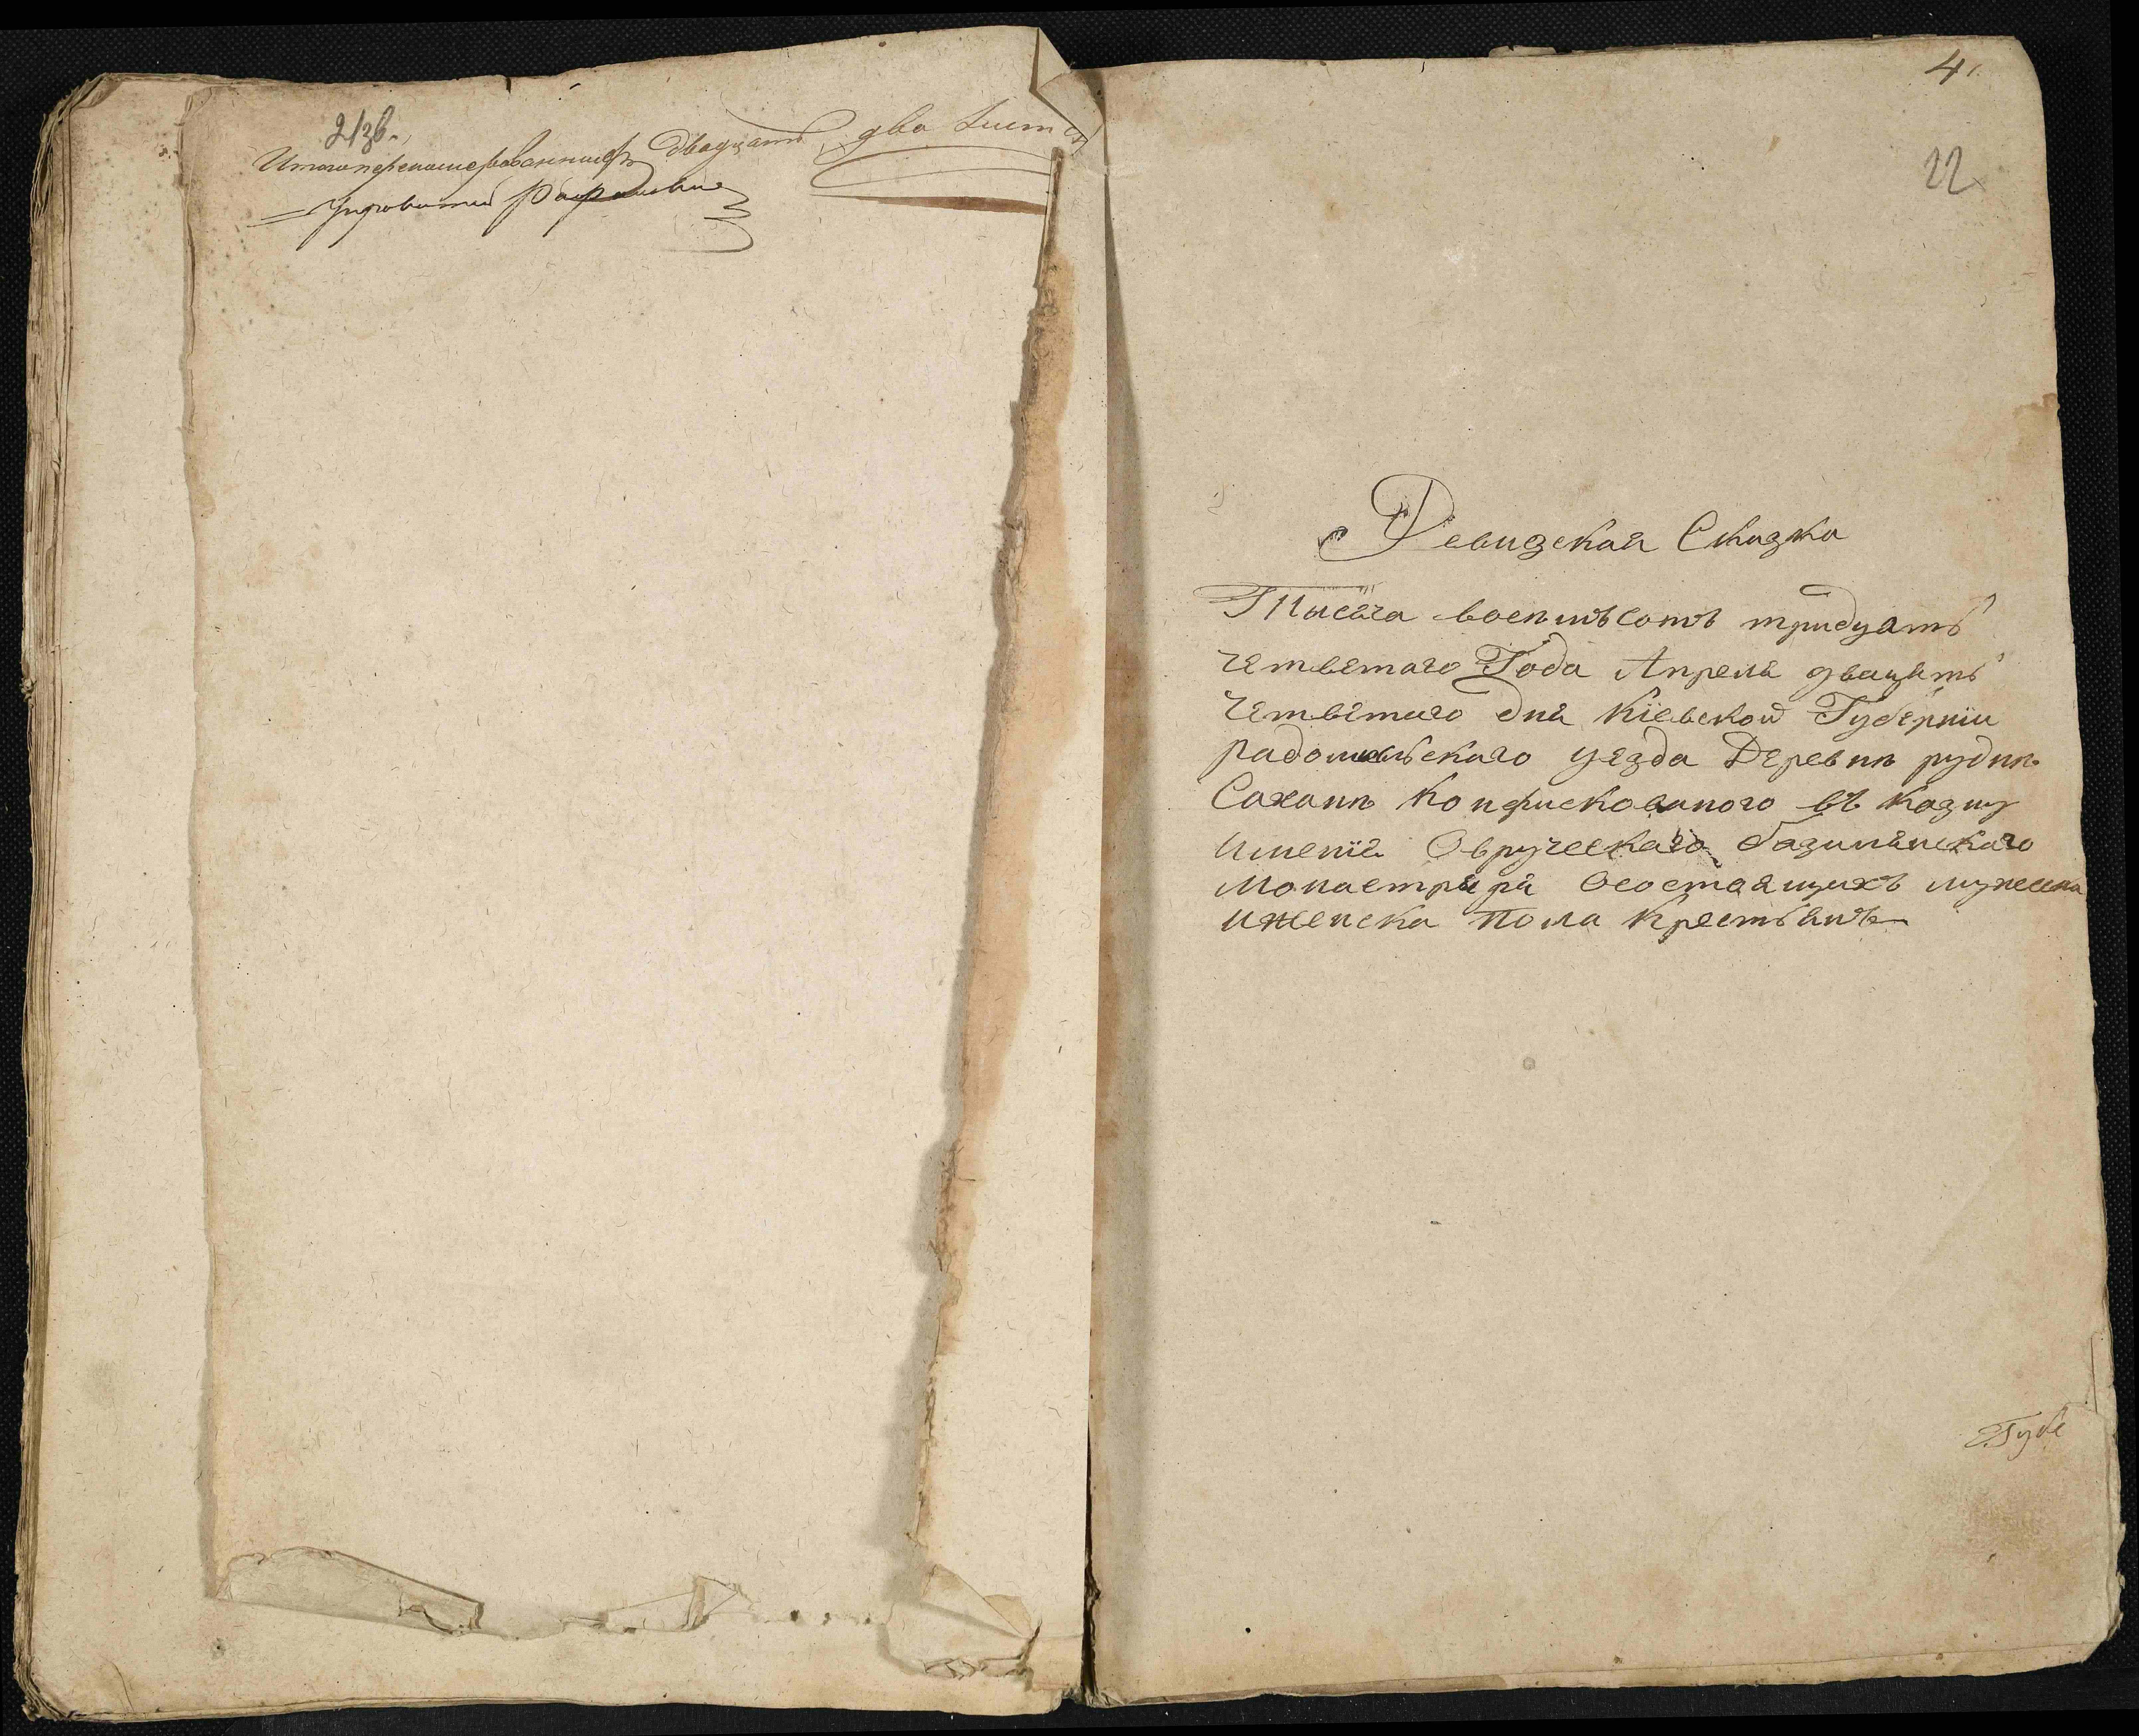 21зв.
Итого перенумерованныхъ двадцать два листа
4
22
Ревизская Сказка
Тысяча восемьсотъ тридцать
четветаго Года Апреля двацять
Четветаго дня Кіевской Губерніи
радомысльскаго уезда Деревни рудни
Сахани Конфискованого въ Казну
Именія Овруческаго базилянскаго
Монастрыря Осостаящихъ мужеска
иженска пола Крестьянъ
Губе